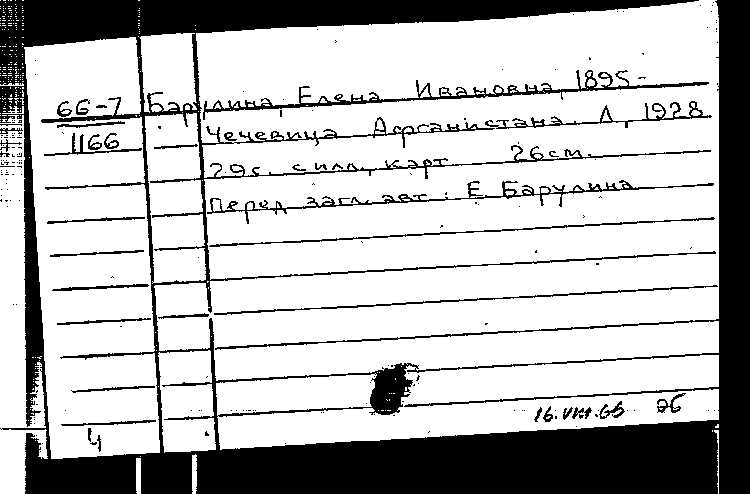 66-7 Барулина, Елена Ивановна, 1895-
1166 Чечевица Афганистана. Л, 1928
29с. с илл., карт 26см.
Перед загл. авт: Е Барулина
16.VIII.66
ч